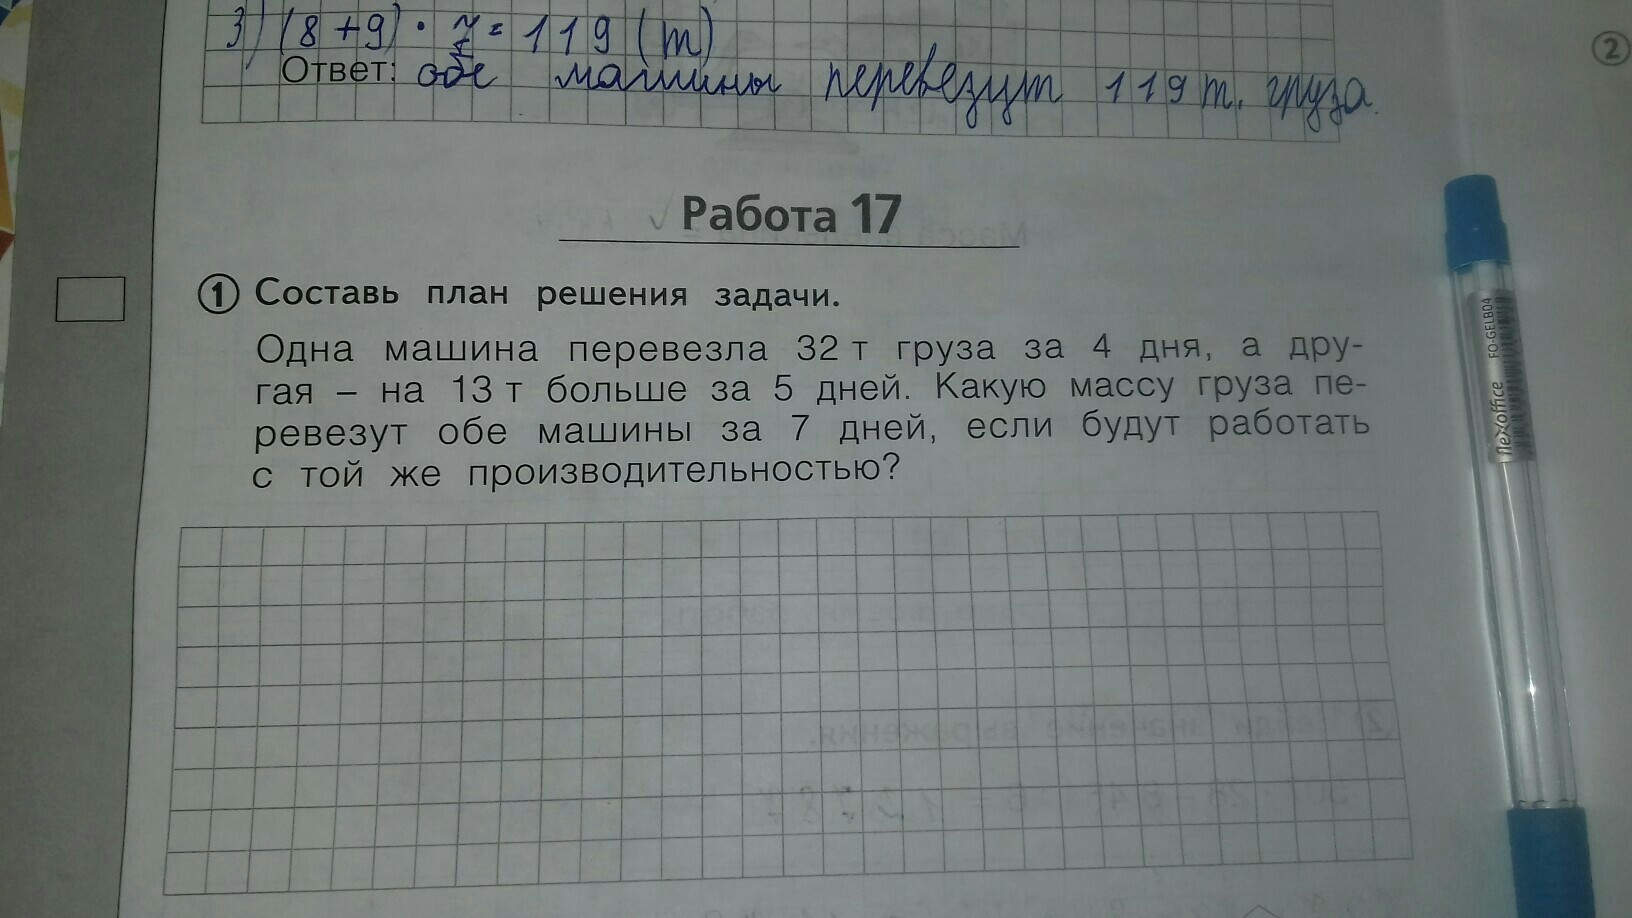 3) (8+9) · 7 = 119 (т)
Ответ: обе машины перевезут 119 т. груза.
2
Работа 17
1 Составь план решения задачи.
Одна машина перевезла 32 т груза за 4 дня, а дру-
гая – на 13 т больше за 5 дней. Какую массу груза пе-
ревезут обе машины за 7 дней, если будут работать
с той же производительностью?
flexoffice FO-GELB04